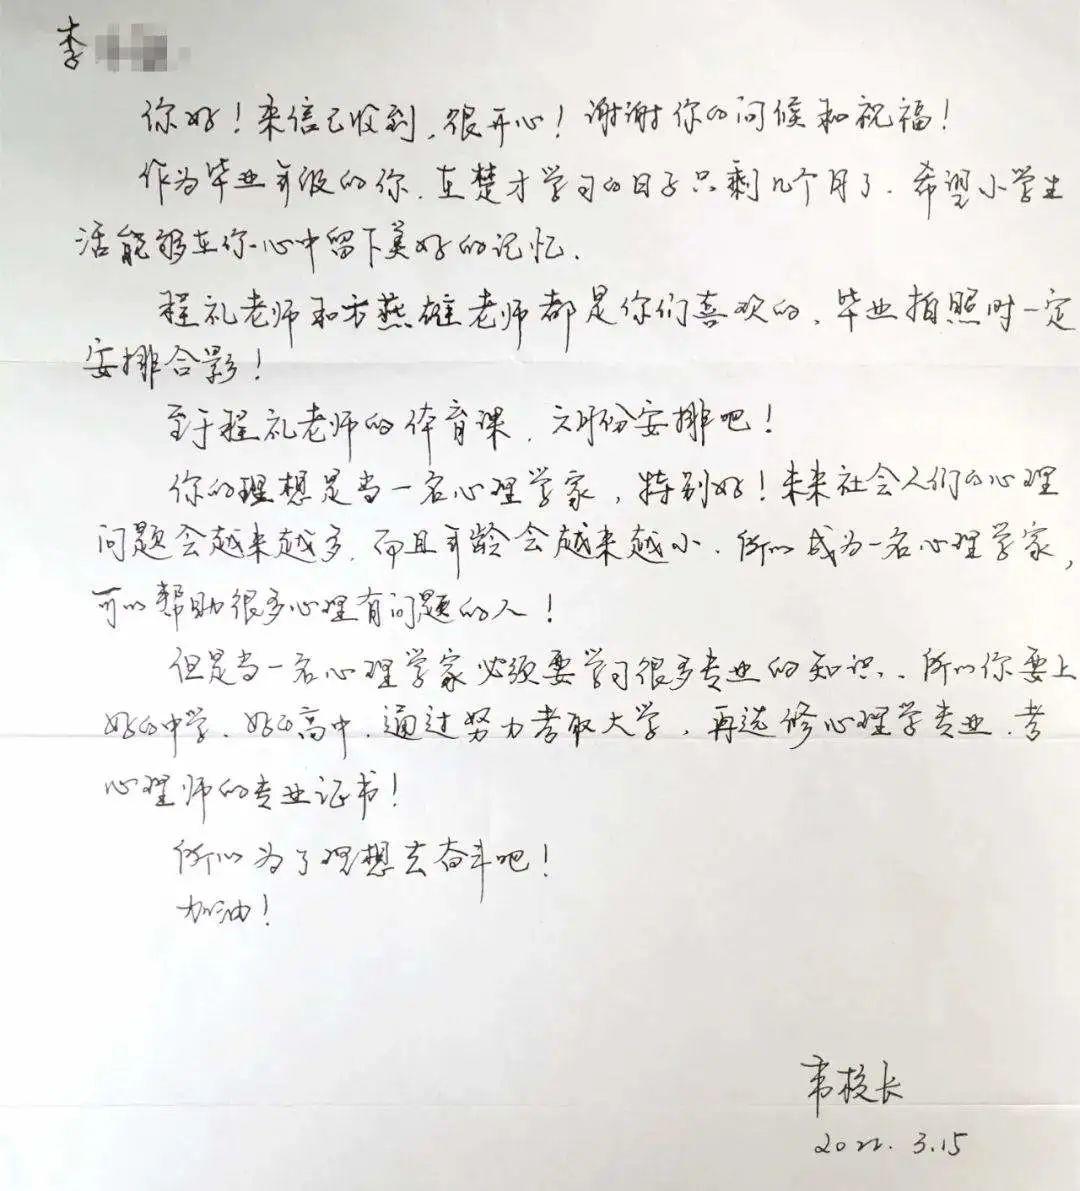 李
你好！来信已收到，很开心！谢谢你的问候和祝福！
作为毕业年级的你，在楚才学习的日子只剩几个月了，希望小学生
活能够在你心中留下美好的记忆。
程礼老师和方燕雄老师都是你们喜欢的，毕业拍照时一定
安排合影！
至于程礼老师的体育课，六月份安排吧！
你的理想是当一名心理学家，特别好！未来社会人们的心理
问题会越来越多，而且年龄会越来越小，所以成为一名心理学家，
可以帮助很多心理有问题的人！
但是当一名心理学家必须要学习很多专业的知识，所以你要上
好的中学、好的高中，通过努力考取大学，再选修心理学专业，考
心理师的专业证书！
所以为了理想去奋斗吧！
加油！
韦校长
2022.3.15